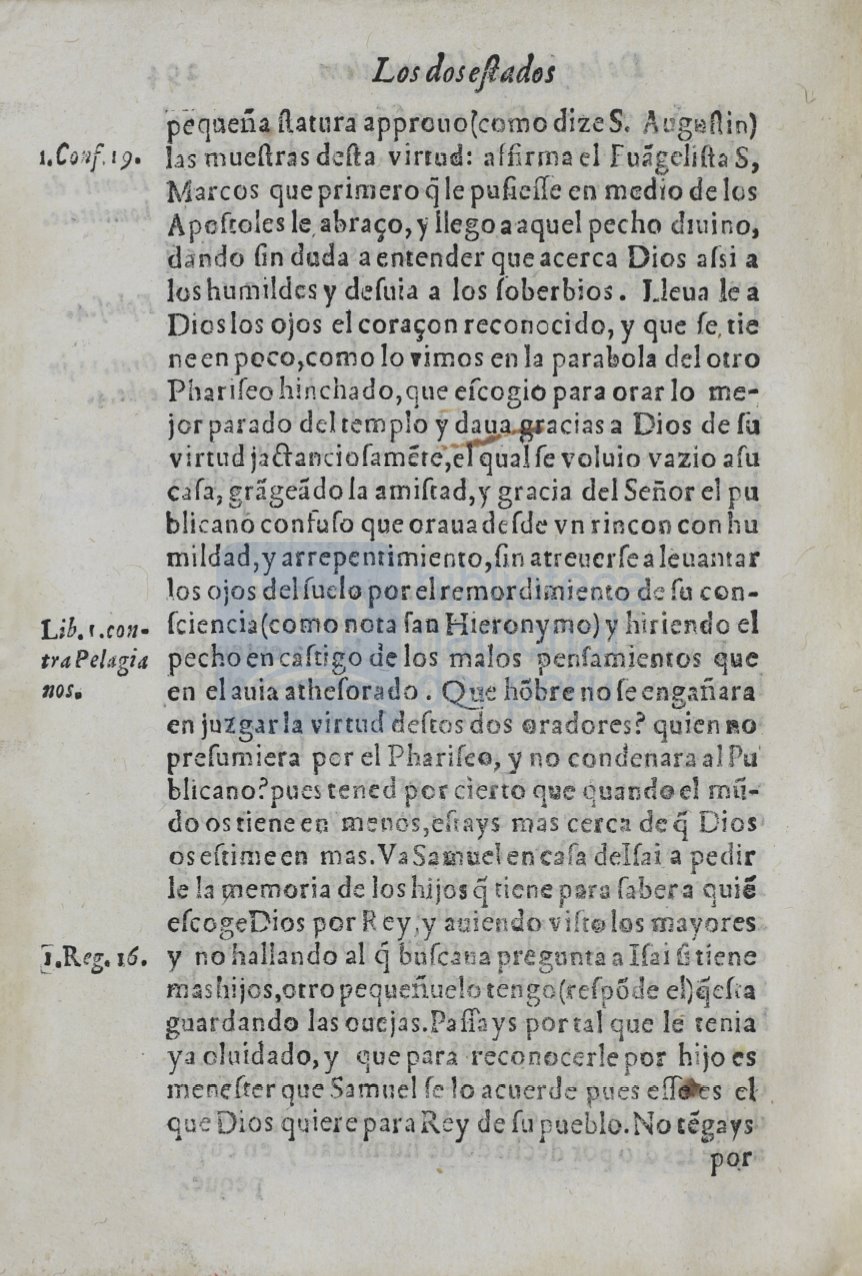 Los dos eſtados
pequeña ſtatura approuo(como dize S. Auguſtin)
1.Conf.19.
las mueſtras deſta virtud: affirma el Euãgeliſta S,
Marcos que primero q̃ le puſieſſe en medio de los
Apoſtoles le abraço, y llego a aquel pecho diuino,
dando ſin duda a entender que acerca Dios aſsi a
los humildes y deſuia a los ſoberbios. Lleua le a
Dios los ojos el coraçon reconocido, y que ſe, tie
ne en poco,como lo vimos en la parabola del otro
Phariſeo hinchado,que eſcogio para orar lo me-
jor parado del templo y daua gracias a Dios de ſu
virtud jactancioſamẽte,el qual ſe voluio vazio a ſu
caſa, grãgeãdo la amiſtad,y gracia del Señor el pu
blicano confuſo que oraua deſde vn rincon con hu
mildad,y arrepentimiento,ſin atreuerſe a leuantar
los ojos del ſuelo por el remordimiento de ſu con-
Lib.1.con-
tra Pelagia
nos.
ſciencia(como nota ſan Hieronymo) y hiriendo el
pecho en caſtigo de los malos penſamientos que
en el auia atheſorado. Que hõbre no ſe engañara
en juzgar la virtud deſtos dos oradores? quien no
preſumiera por el Phariſeo, y no condenara al Pu
blicano?pues tened por cierto que quando el mũ-
do os tiene en menos,eſtays mas cerca de q̃ Dios
os eſtime en mas.Va Samuel en caſa de Iſai a pedir
le la memoria de los hijos q̃ tiene para ſaber a quiẽ
eſcoge Dios por Rey,y auiendo viſto los mayores
1.Reg.16.
y no hallando al q̃ buſcaua pregunta a Iſai ſi tiene
mas hijos,otro pequeñuelo tengo(reſpõde el)q̃ eſta
guardando las ouejas.Paſſays por tal que le tenia
ya oluidado, y que para reconocerle por hijo es
meneſter que Samuel ſe lo acuerde pues eſſe es el
que Dios quiere para Rey de ſu pueblo.No tẽgays
por